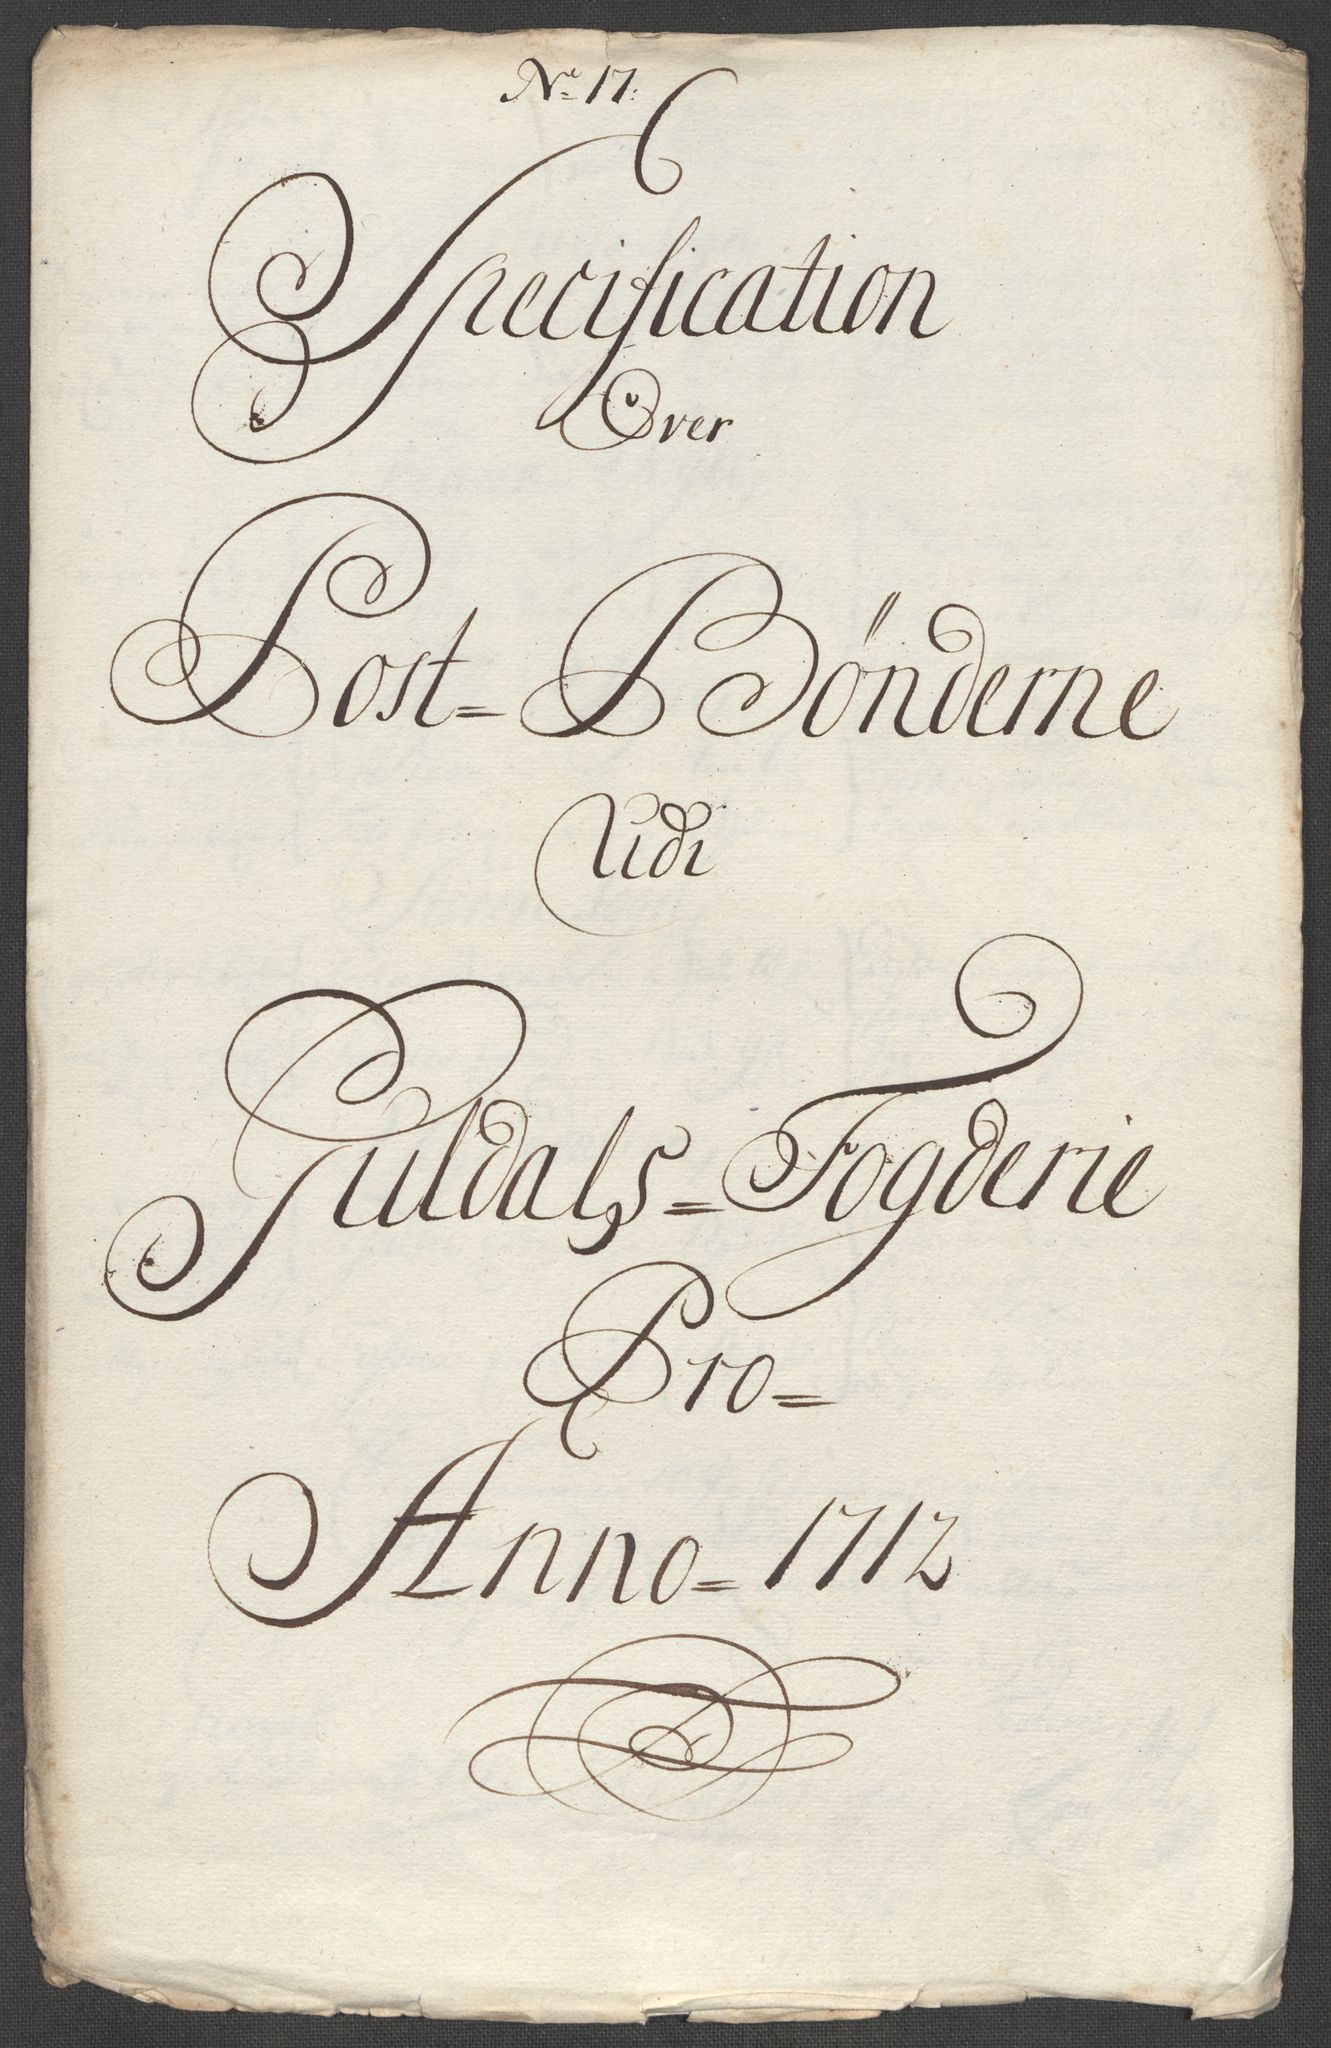 No 17.
Specification
Over
Post= Bönderne
Udi
Guldals= Fogderie
Pro=
Anno= 1712